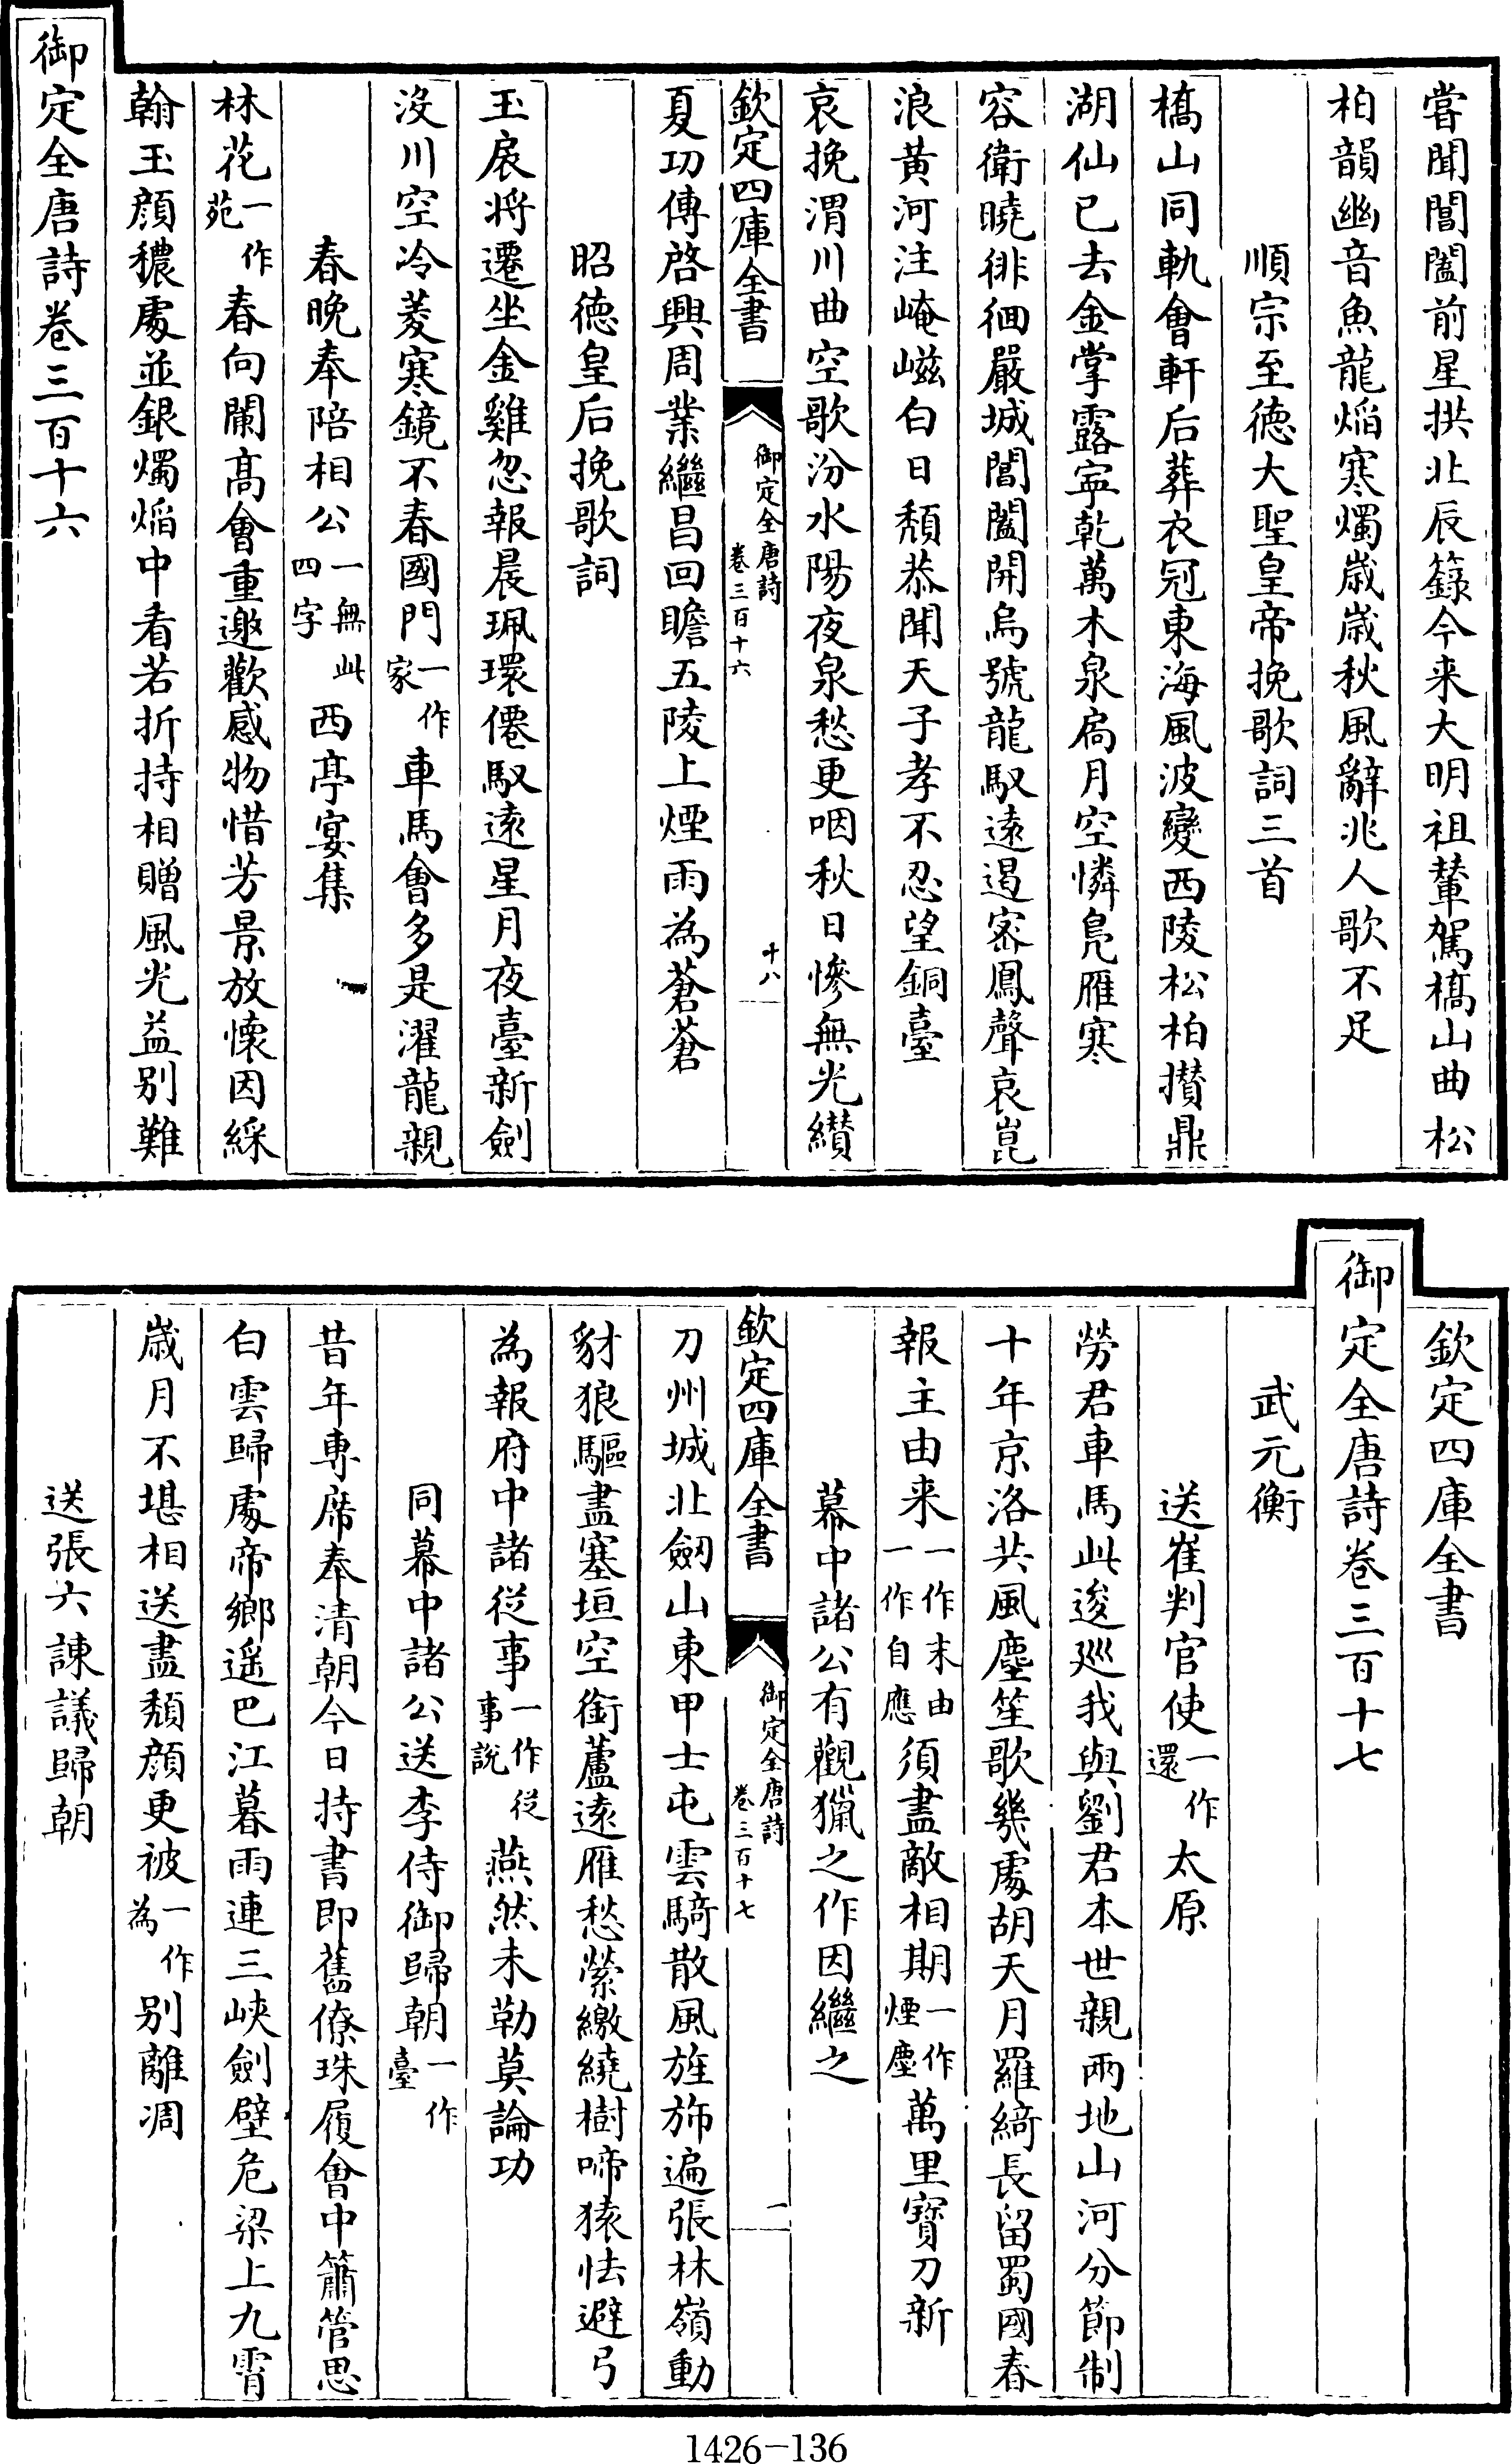 嘗聞閶闔前星拱北辰籙今来大明祖輦駕橋山曲松
柏韻幽音魚龍焰寒燭歲歲秋風辭兆人歌不足
順宗至德大聖皇帝挽歌詞三首
橋山同軌會軒后葬衣冠東海風波變西陵松柏攢鼎
湖仙已去金掌露寧乾萬木泉扃月空憐鳬雁寒
容衛曉徘徊嚴城閶闔開烏號龍馭遠遏密鳳聲哀崑
浪黄河注崦嵫白日頹恭聞天子孝不忍望銅臺
哀挽渭川曲空歌汾水陽夜泉愁更咽秋日慘無光纘
欽定四庫全書
御定全唐詩
卷三百十六
十八
夏功傳啓興周業繼昌回瞻五陵上煙雨為蒼蒼
昭德皇后挽歌詞
玉扆将遷坐金雞忽報晨珮環僊馭遠星月夜臺新劍
沒川空冷菱寒鏡不春國門一作家車馬會多是濯龍親
春晚奉陪相公一無此四字西亭宴集
林花一作苑春向闌髙會重邀歡感物惜芳景放懷因綵
翰玉顔穠處並銀燭焰中看若折持相贈風光益别難
御定全唐詩卷三百十六
欽定四庫全書
御定全唐詩卷三百十七
武元衡
送崔判官使一作還太原
勞君車馬此逡巡我與劉君本世親兩地山河分節制
十年京洛共風塵笙歌幾處胡天月羅綺長留蜀國春
報主由来一作末由一作自應須盡敵相期一作煙塵萬里寶刀新
幕中諸公有觀獵之作因繼之
欽定四庫全書
御定全唐詩
卷三百十七
一
刀州城北劒山東甲士屯雲騎散風旌斾遍張林嶺動
豺狼驅盡塞垣空銜蘆遠雁愁縈繳繞樹啼猿怯避弓
為報府中諸從事一作從事說燕然未勒莫論功
同幕中諸公送李侍御歸朝一作臺
昔年專席奉清朝今日持書即舊僚珠履會中簫管思
白雲歸處帝鄉遥巴江暮雨連三峽劍壁危梁上九霄
歲月不堪相送盡頹顔更被一作為别離凋
送張六諫議歸朝
1426-136